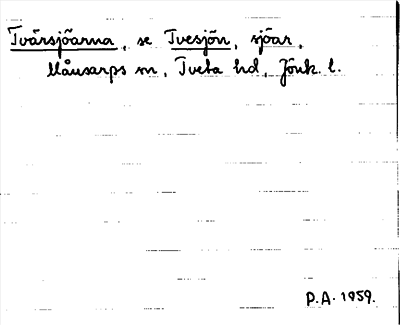 Tvärsjöarna, se Tvesjön, sjöar,
Månsarps sn, Tveta hd, Jönk. l.
P.A. 1959.